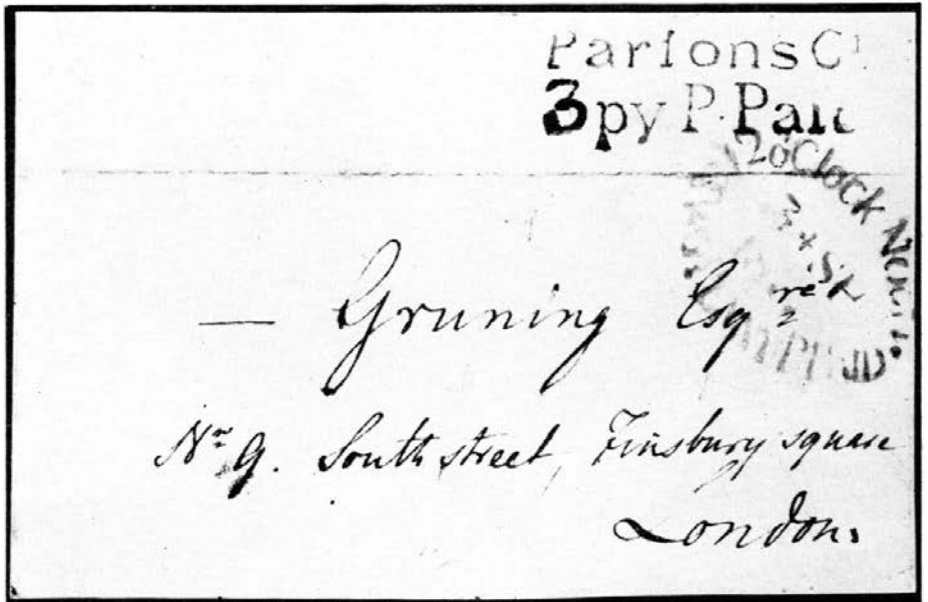 Parsons
3py P. Paid
12 o'Clock
— Gruning Esqre
No 9. South street, Finsbury square
London.